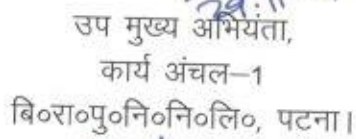 उप मुख्य अभियंता,
कार्य अंचल-1
बि०रा०पु०नि०नि०लि०, पटना।